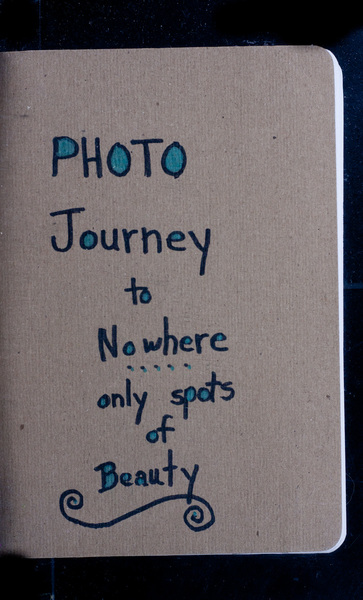 PHOTO
Journey
to
Nowhere
.....
only spots
of
Beauty